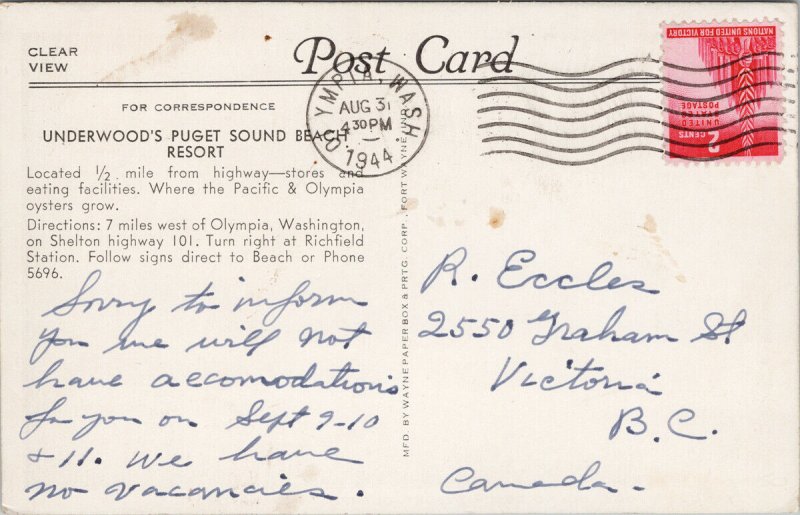 CLEAR
VIEW
Post Card
FOR CORRESPONDENCE
UNDERWOOD'S PUGET SOUND BEACH
RESORT
Located 1/2 mile from highway—stores and
eating facilities. Where the Pacific & Olympia
oysters grow.
Directions: 7 miles west of Olympia, Washington,
on Shelton highway 101. Turn right at Richfield
Station. Follow signs direct to Beach or Phone
5696.
Sorry to inform
you we will not
have accomodations
for you on Sept 9-10
& 11. We have
no vacancies.
MFD. BY WAYNE PAPER BOX & PRTG. CORP., FORT WAYNE, IND.
OLYMPIA, WASH.
AUG 31
4 30 PM
1944
NATIONS UNITED FOR VICTORY
UNITED
STATES
POSTAGE
2
CENTS
R. Eccles
2550 Graham St
Victoria
B.C.
Canada.